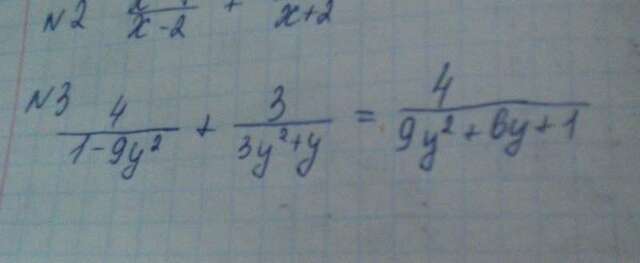 N2 x-2 + x+2
N3 4/(1-9y²) + 3/(3y²+y) = 4/(9y²+6y+1)